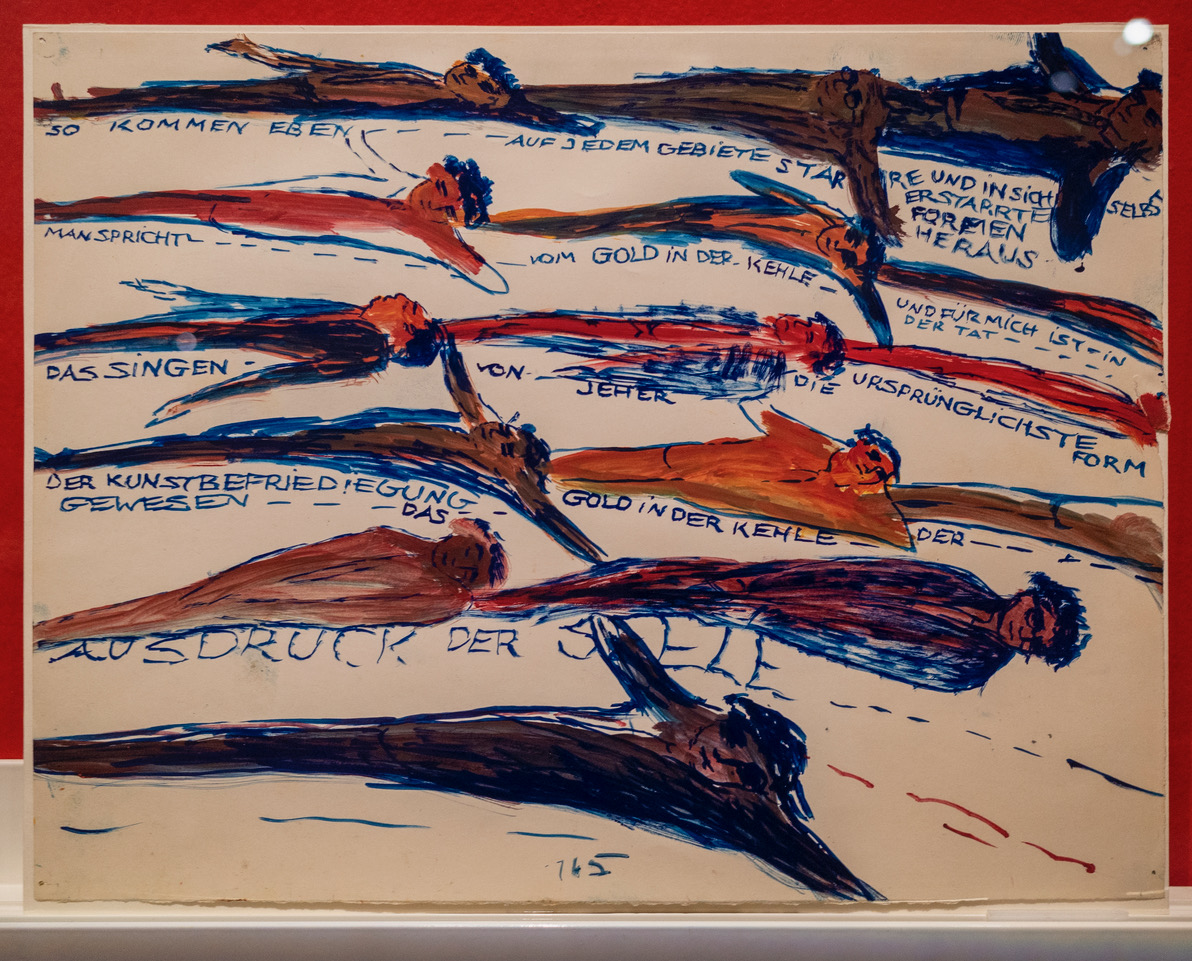 SO KOMMEN EBEN — — — AUF JEDEM GEBIETE STARRE UND IN SICH SELBS
ERSTARRTE
FORMEN
HERAUS
MAN SPRICHT — — — VOM GOLD IN DER KEHLE —
UND FÜR MICH IST — IN
DER TAT — — —
DAS SINGEN — VON — JEHER — DIE URSPRÜNGLICHSTE
FORM
DER KUNSTBEFRIEDIEGUNG
GEWESEN — — — DAS — GOLD IN DER KEHLE — — DER — — —
AUSDRUCK DER SEELE
165